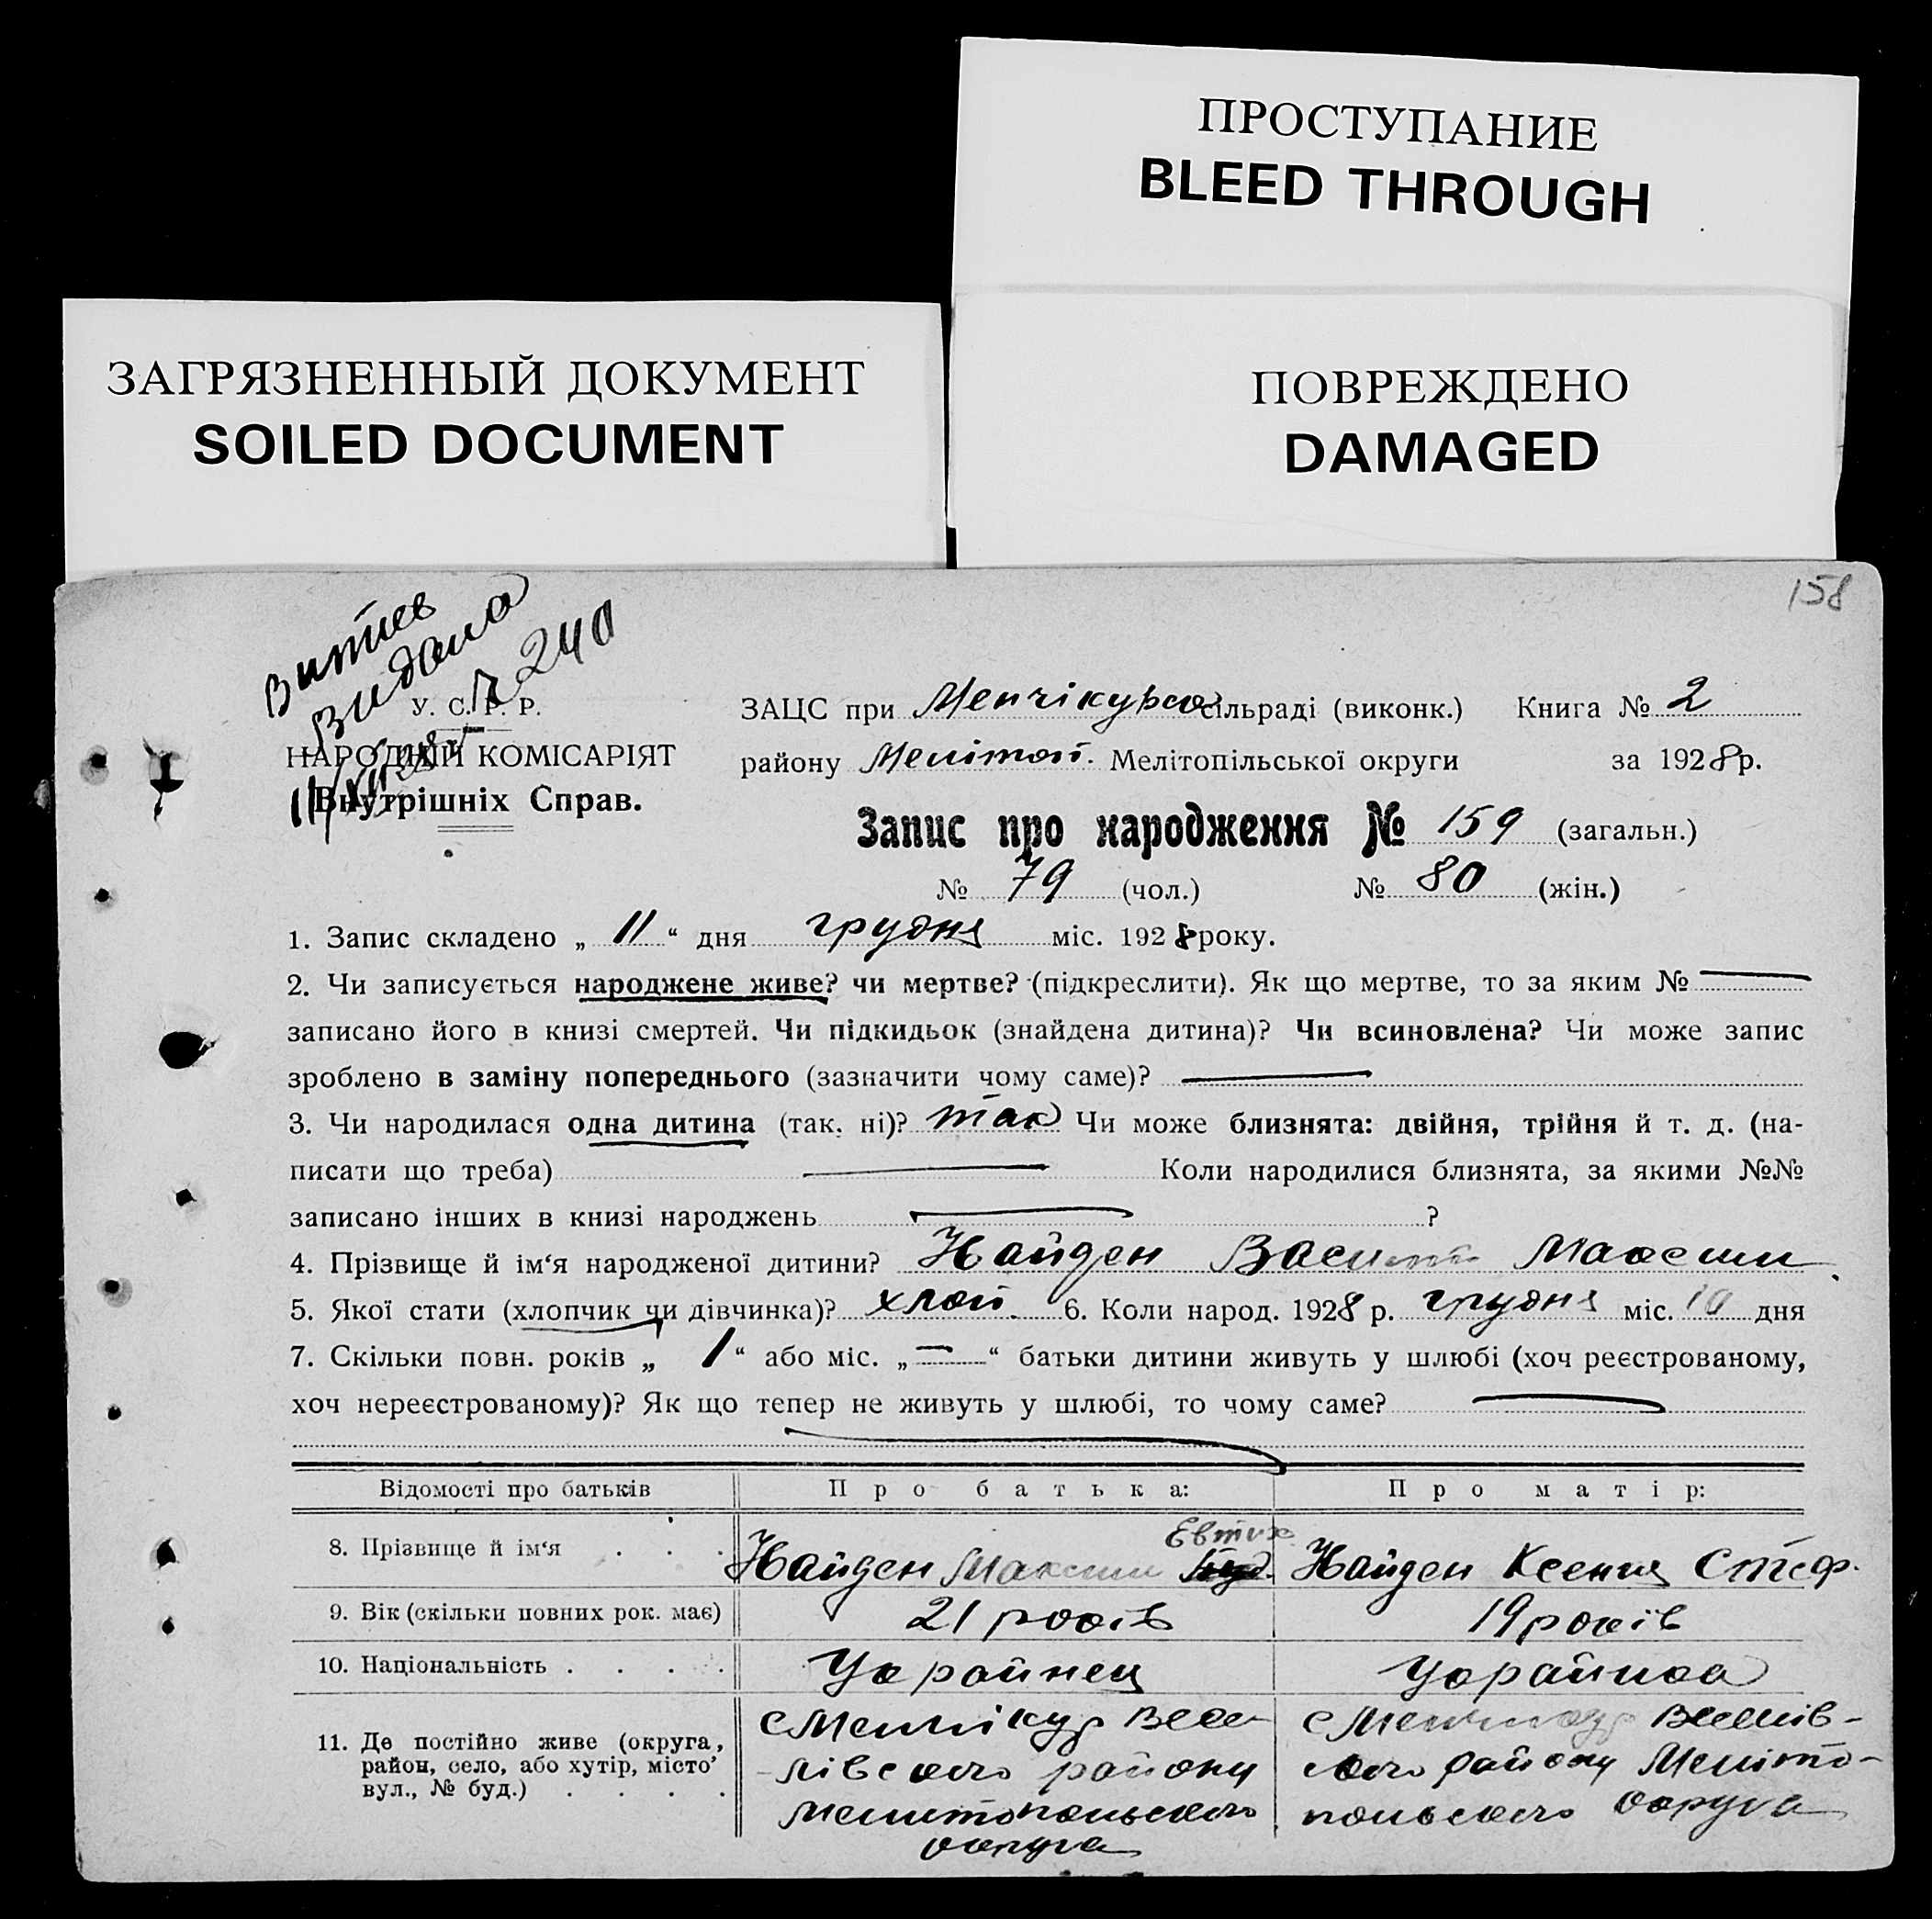 ПРОСТУПАНИЕ
BLEED THROUGH
ЗАГРЯЗНЕННЫЙ ДОКУМЕНТ
SOILED DOCUMENT
ПОВРЕЖДЕНО
DAMAGED
158
Витяг
видано
240
У. С. Р. Р.
НАРОДНІЙ КОМІСАРІЯТ
Внутрішніх Справ.
ЗАЦС при Менчікурськ сільраді (виконк.) Книга № 2
району Мелітоп. Мелітопільської округи за 1928 р.
Запис про народження № 159 (загальн.)
№ 79 (чол.) № 80 (жін.)
1. Запис складено „ 11 “ дня грудня міс. 1928 року.
2. Чи записується народжене живе? чи мертве? (підкреслити). Як що мертве, то за яким №
записано його в книзі смертей. Чи підкидьок (знайдена дитина)? Чи всиновлена? Чи може запис
зроблено в заміну попереднього (зазначити чому саме)?
3. Чи народилася одна дитина (так. ні)? так Чи може близнята: двійня, трійня й т. д. (на-
писати що треба) Коли народилися близнята, за якими №№
записано інших в книзі народжень ?
4. Прізвище й ім‘я народженої дитини? Найден Василь Максим
5. Якої стати (хлопчик чи дівчинка)? хлоп. 6. Коли народ. 1928 р. грудня міс. 10 дня
7. Скільки повн. років „ 1 “ або міс. „ — “ батьки дитини живуть у шлюбі (хоч реєстрованому,
хоч нереєстрованому)? Як що тепер не живуть у шлюбі, то чому саме?
Відомості про батьків Про батька: Про матір:
Евтих
8. Прізвище й ім‘я Найден Максим Найден Ксения Стеф.
9. Вік (скільки повних рок. має) 21 років 19 років
10. Національність Украйнец Украйнка
11. Де постійно живе (округа,
район, село, або хутір, місто
вул., № буд.)
с Менчікур Весе-
лівского району
Мелитопольского
округа
с Менчикур Веселів-
ского району Меліто-
польского округа